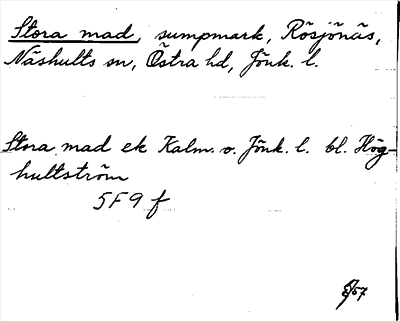 Stora mad, sumpmark, Rösjönäs,
Näshults sn, Östra hd, Jönk. l.
Stora mad ek Kalm. o. Jönk. l. bl. Hög-
hultström
5F9 f